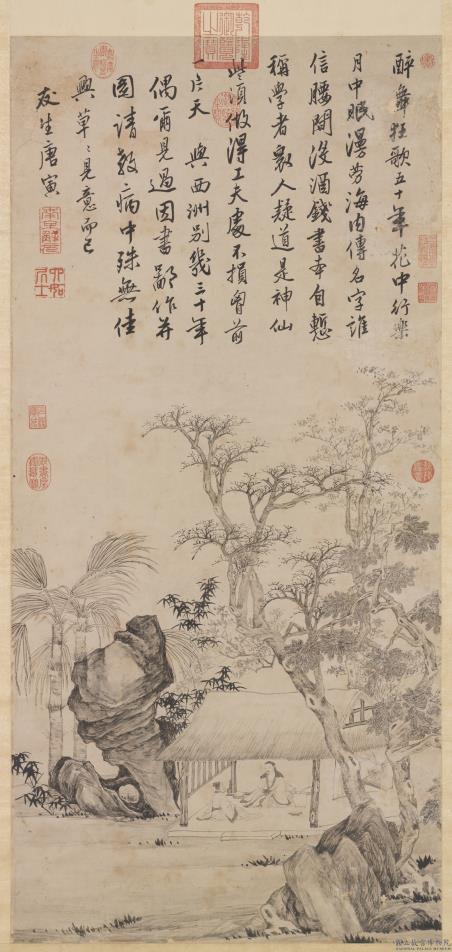 醉舞狂歌五十年花中行樂
月中眠漫勞海內傳名字誰
信腰間沒酒錢書本自慙
稱學者眾人疑道是神仙
些須做得工夫處不損胷前
一片天 與西洲別幾三十年
偶爾見過因書鄙作并
圖請教病中殊無佳
興草〻見意而已
友生唐寅
南京解元
六如居士
乾隆御覽之寶
國立故宮博物院
NATIONAL PALACE MUSEUM